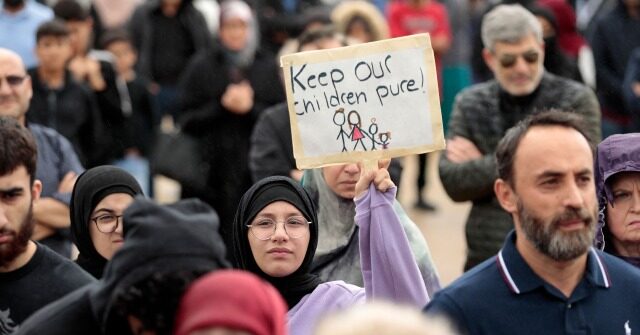 Keep our
children pure!